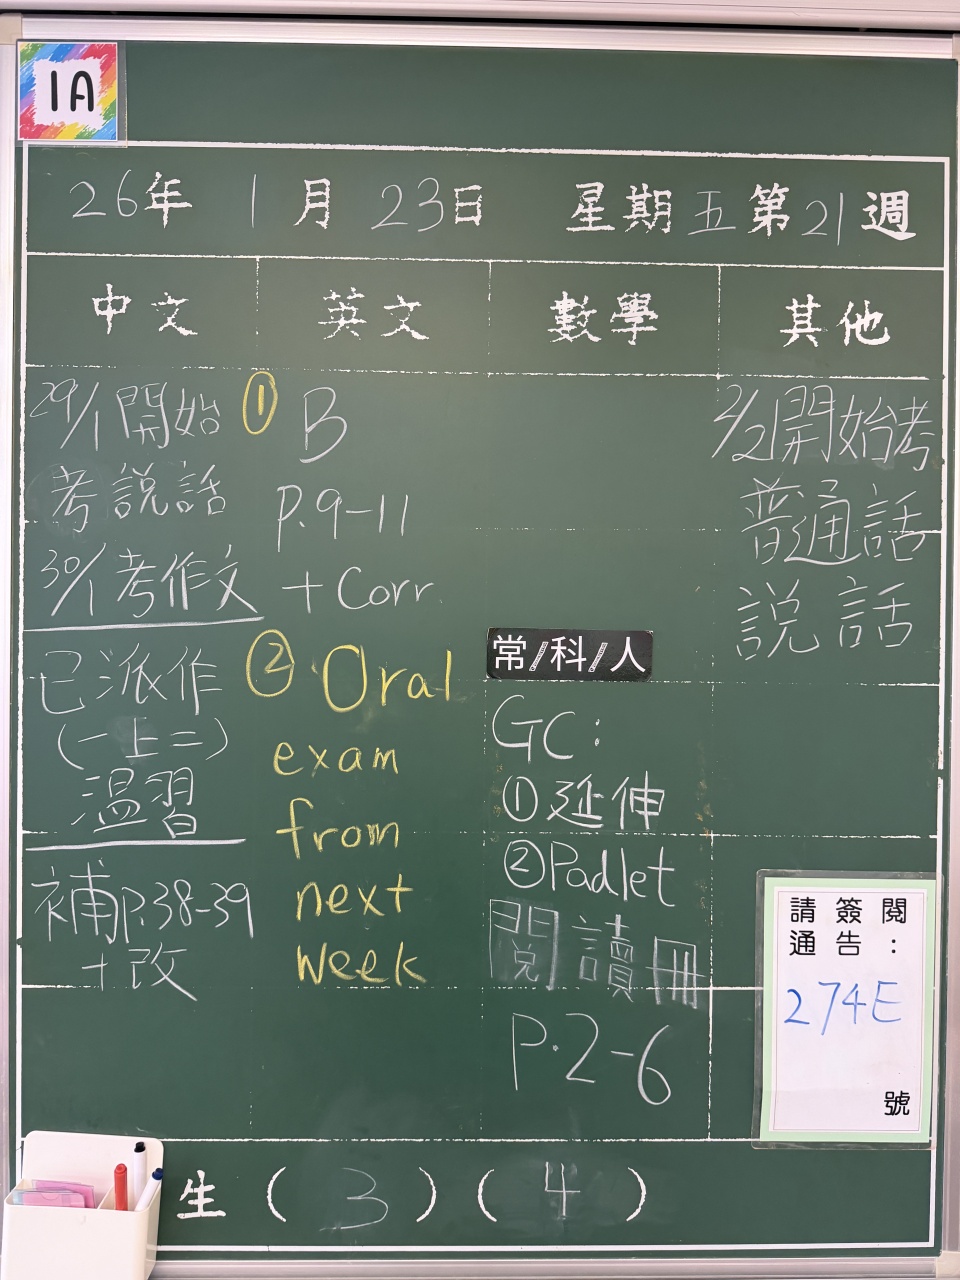 1A
26年 1月 23日 星期五第21週
中文 英文 數學 其他
29/1開始
考說話
30/1考作文
已派作
(一上二)
溫習
補P.38-39
+改
① B
P.9-11
+Corr.
② Oral
exam
from
next
week
常/科/人
GC:
①延伸
②Padlet
閱讀冊
P.2-6
2/2開始考
普通話
說話
請簽閱
通告：
274E
號
生(3)(4)